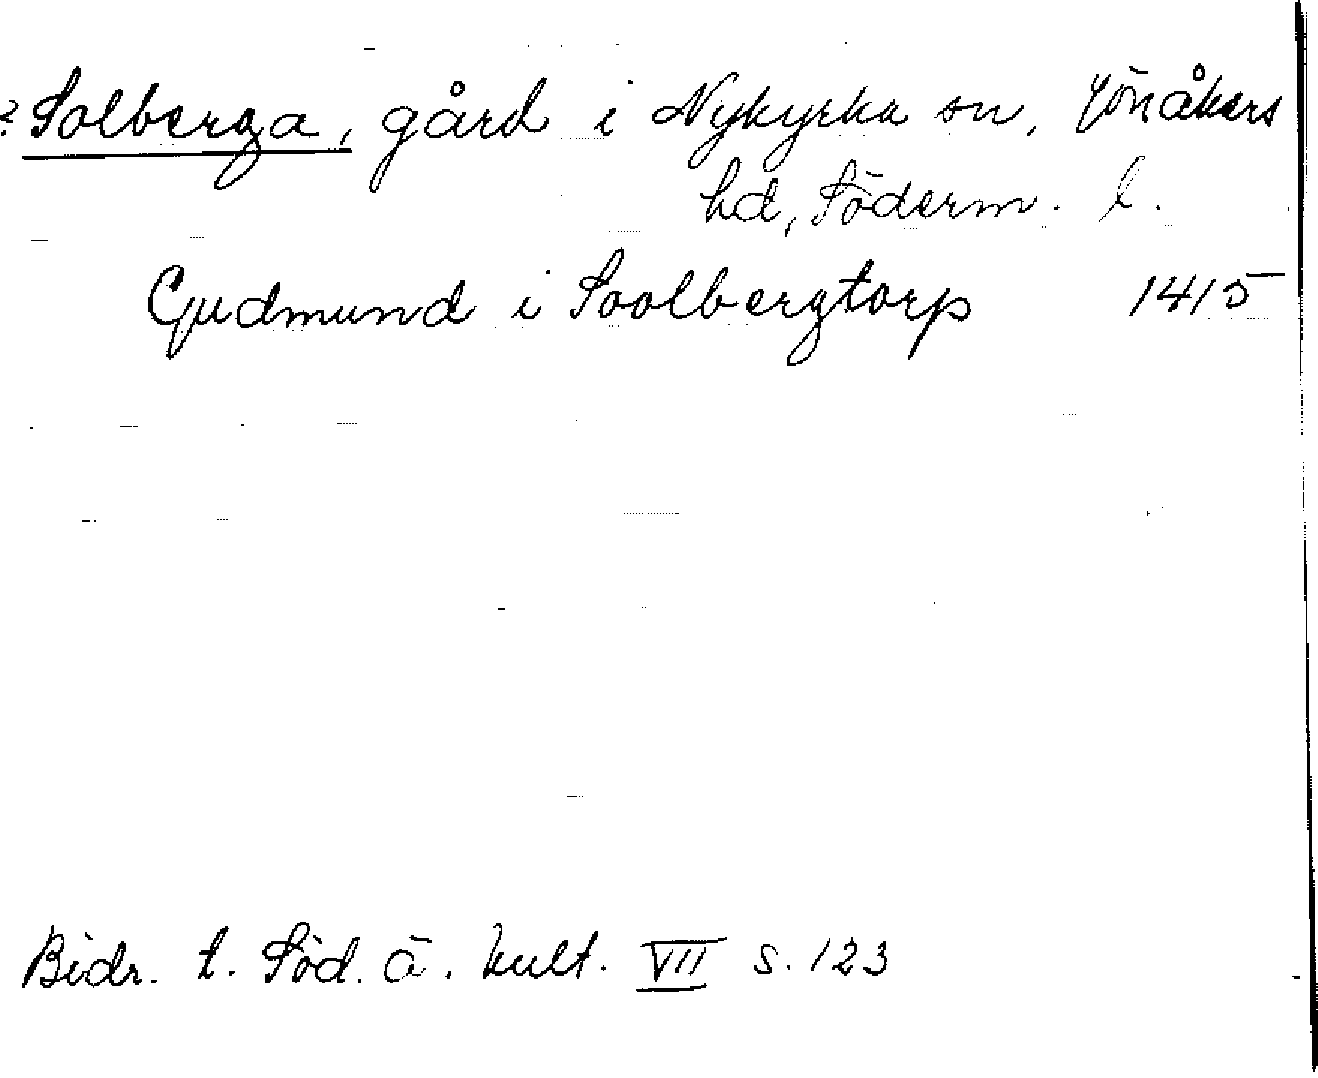 ? Solberga, gård i Nykyrka sn, Jönåkers
hd, Söderm. l.
Gudmund i Soolbergtorp 1415
Bidr. t. Söd. ä. kult. VII s. 123